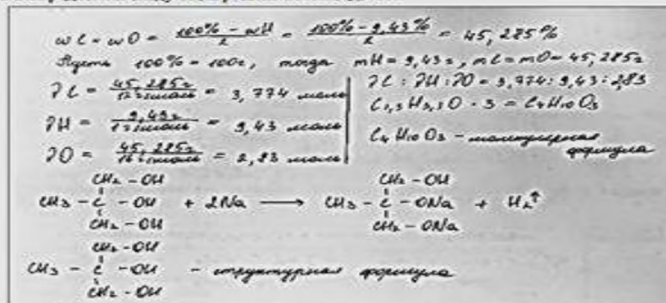 ωC = ωO = (100% - ωH)/2 = (100% - 9,43%)/2 = 45,285%
Пусть 100% = 100г, тогда mH = 9,43г, mC = mO = 45,285г
νC = 45,285г/12г/моль = 3,774 моль
νH = 9,43г/1г/моль = 9,43 моль
νO = 45,285г/16г/моль = 2,83 моль
νC : νH : νO = 3,774 : 9,43 : 2,83
C1,3H3,3O · 3 = C4H10O3
C4H10O3 – молекулярная
формула
CH2 - OH CH2 - OH
CH3 - C - OH + 2Na ⟶ CH3 - C - ONa + H2↑
CH2 - OH CH2 - ONa
CH2 - OH
CH3 - C - OH - структурная формула
CH2 - OH